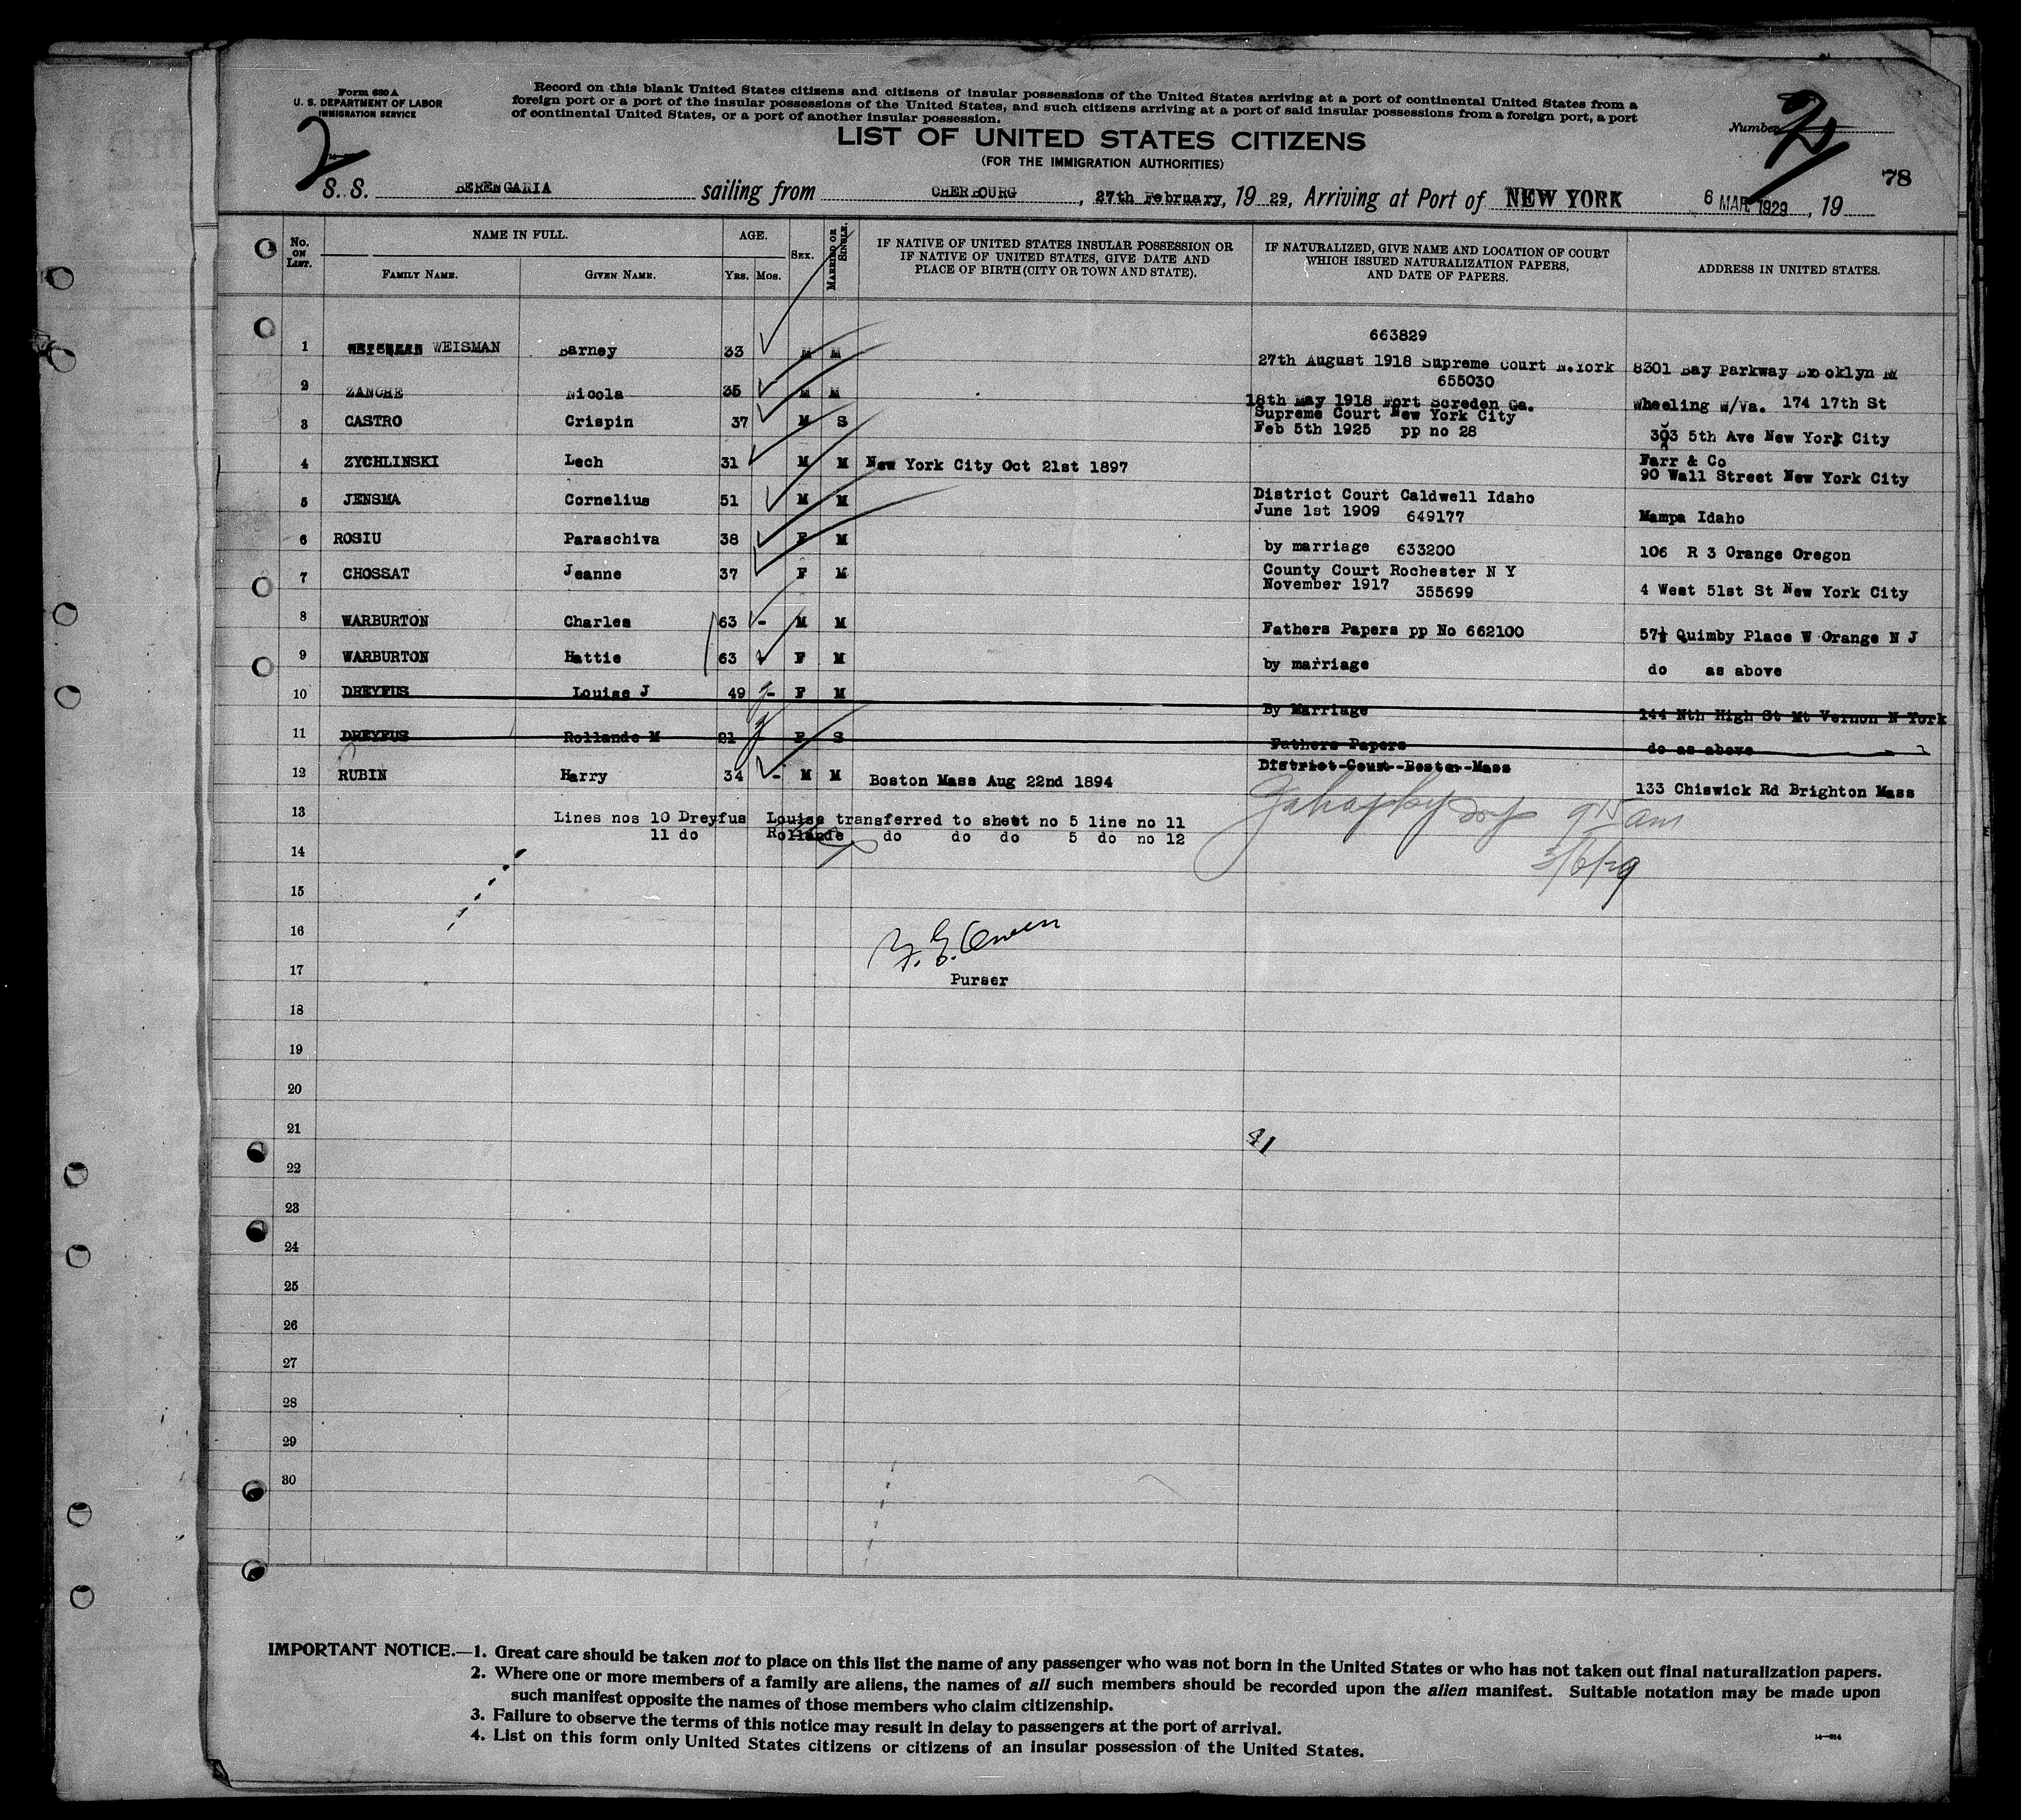 Form 630 A
U. S. DEPARTMENT OF LABOR
IMMIGRATION SERVICE
Record on this blank United States citizens and citizens of insular possessions of the United States arriving at a port of continental United States from a
foreign port or a port of the insular possessions of the United States, and such citizens arriving at a port of said insular possessions from a foreign port, a port
of continental United States, or a port of another insular possession.
LIST OF UNITED STATES CITIZENS
(FOR THE IMMIGRATION AUTHORITIES)
Number
2
78
S. S. BERENGARIA sailing from CHERBOURG, 27th February, 19 29, Arriving at Port of NEW YORK 6 MAR 1929, 19
No. ON LIST.
NAME IN FULL.
FAMILY NAME. GIVEN NAME.
AGE.
YRS. MOS.
SEX.
MARRIED OR SINGLE.
IF NATIVE OF UNITED STATES INSULAR POSSESSION OR
IF NATIVE OF UNITED STATES, GIVE DATE AND
PLACE OF BIRTH (CITY OR TOWN AND STATE).
IF NATURALIZED, GIVE NAME AND LOCATION OF COURT
WHICH ISSUED NATURALIZATION PAPERS,
AND DATE OF PAPERS.
ADDRESS IN UNITED STATES.
663829
1 WEISMAN Barney 33 M M 27th August 1918 Supreme Court N.York 8301 Bay Parkway Brooklyn NY
655030
2 ZANGHE Nicola 35 M M 18th May 1918 Fort Screden Ga. Wheeling W/Va. 174 17th St
3 CASTRO Crispin 37 M S Supreme Court New York City
Feb 5th 1925 pp no 28 303 5th Ave New York City
4 ZYCHLINSKI Lech 31 M M New York City Oct 21st 1897 Farr & Co
90 Wall Street New York City
5 JENSMA Cornelius 51 M M District Court Caldwell Idaho
June 1st 1909 649177 Mampa Idaho
6 ROSIU Paraschiva 38 F M by marriage 633200 106 R 3 Orange Oregon
7 CHOSSAT Jeanne 37 F M County Court Rochester N Y
November 1917 355699 4 West 51st St New York City
8 WARBURTON Charles 63 - M M Fathers Papers pp No 662100 57½ Quimby Place W Orange N J
9 WARBURTON Hattie 63 F M by marriage do as above
10 DREYFUS Louise J 49 - F M By Marriage 144 Nth High St Mt Vernon N York
11 DREYFUS Rollande M 21 - F S Fathers Papers do as above
12 RUBIN Harry 34 - M M Boston Mass Aug 22nd 1894 District Court Boston Mass 133 Chiswick Rd Brighton Mass
13 Lines nos 10 Dreyfus Louise transferred to sheet no 5 line no 11
11 do Rollande do do do 5 do no 12
9 15 am
3/6/29
14
15
16
17
Purser
18
19
20
21
41
22
23
24
25
26
27
28
29
30
IMPORTANT NOTICE.—1. Great care should be taken not to place on this list the name of any passenger who was not born in the United States or who has not taken out final naturalization papers.
2. Where one or more members of a family are aliens, the names of all such members should be recorded upon the alien manifest. Suitable notation may be made upon
such manifest opposite the names of those members who claim citizenship.
3. Failure to observe the terms of this notice may result in delay to passengers at the port of arrival.
4. List on this form only United States citizens or citizens of an insular possession of the United States.